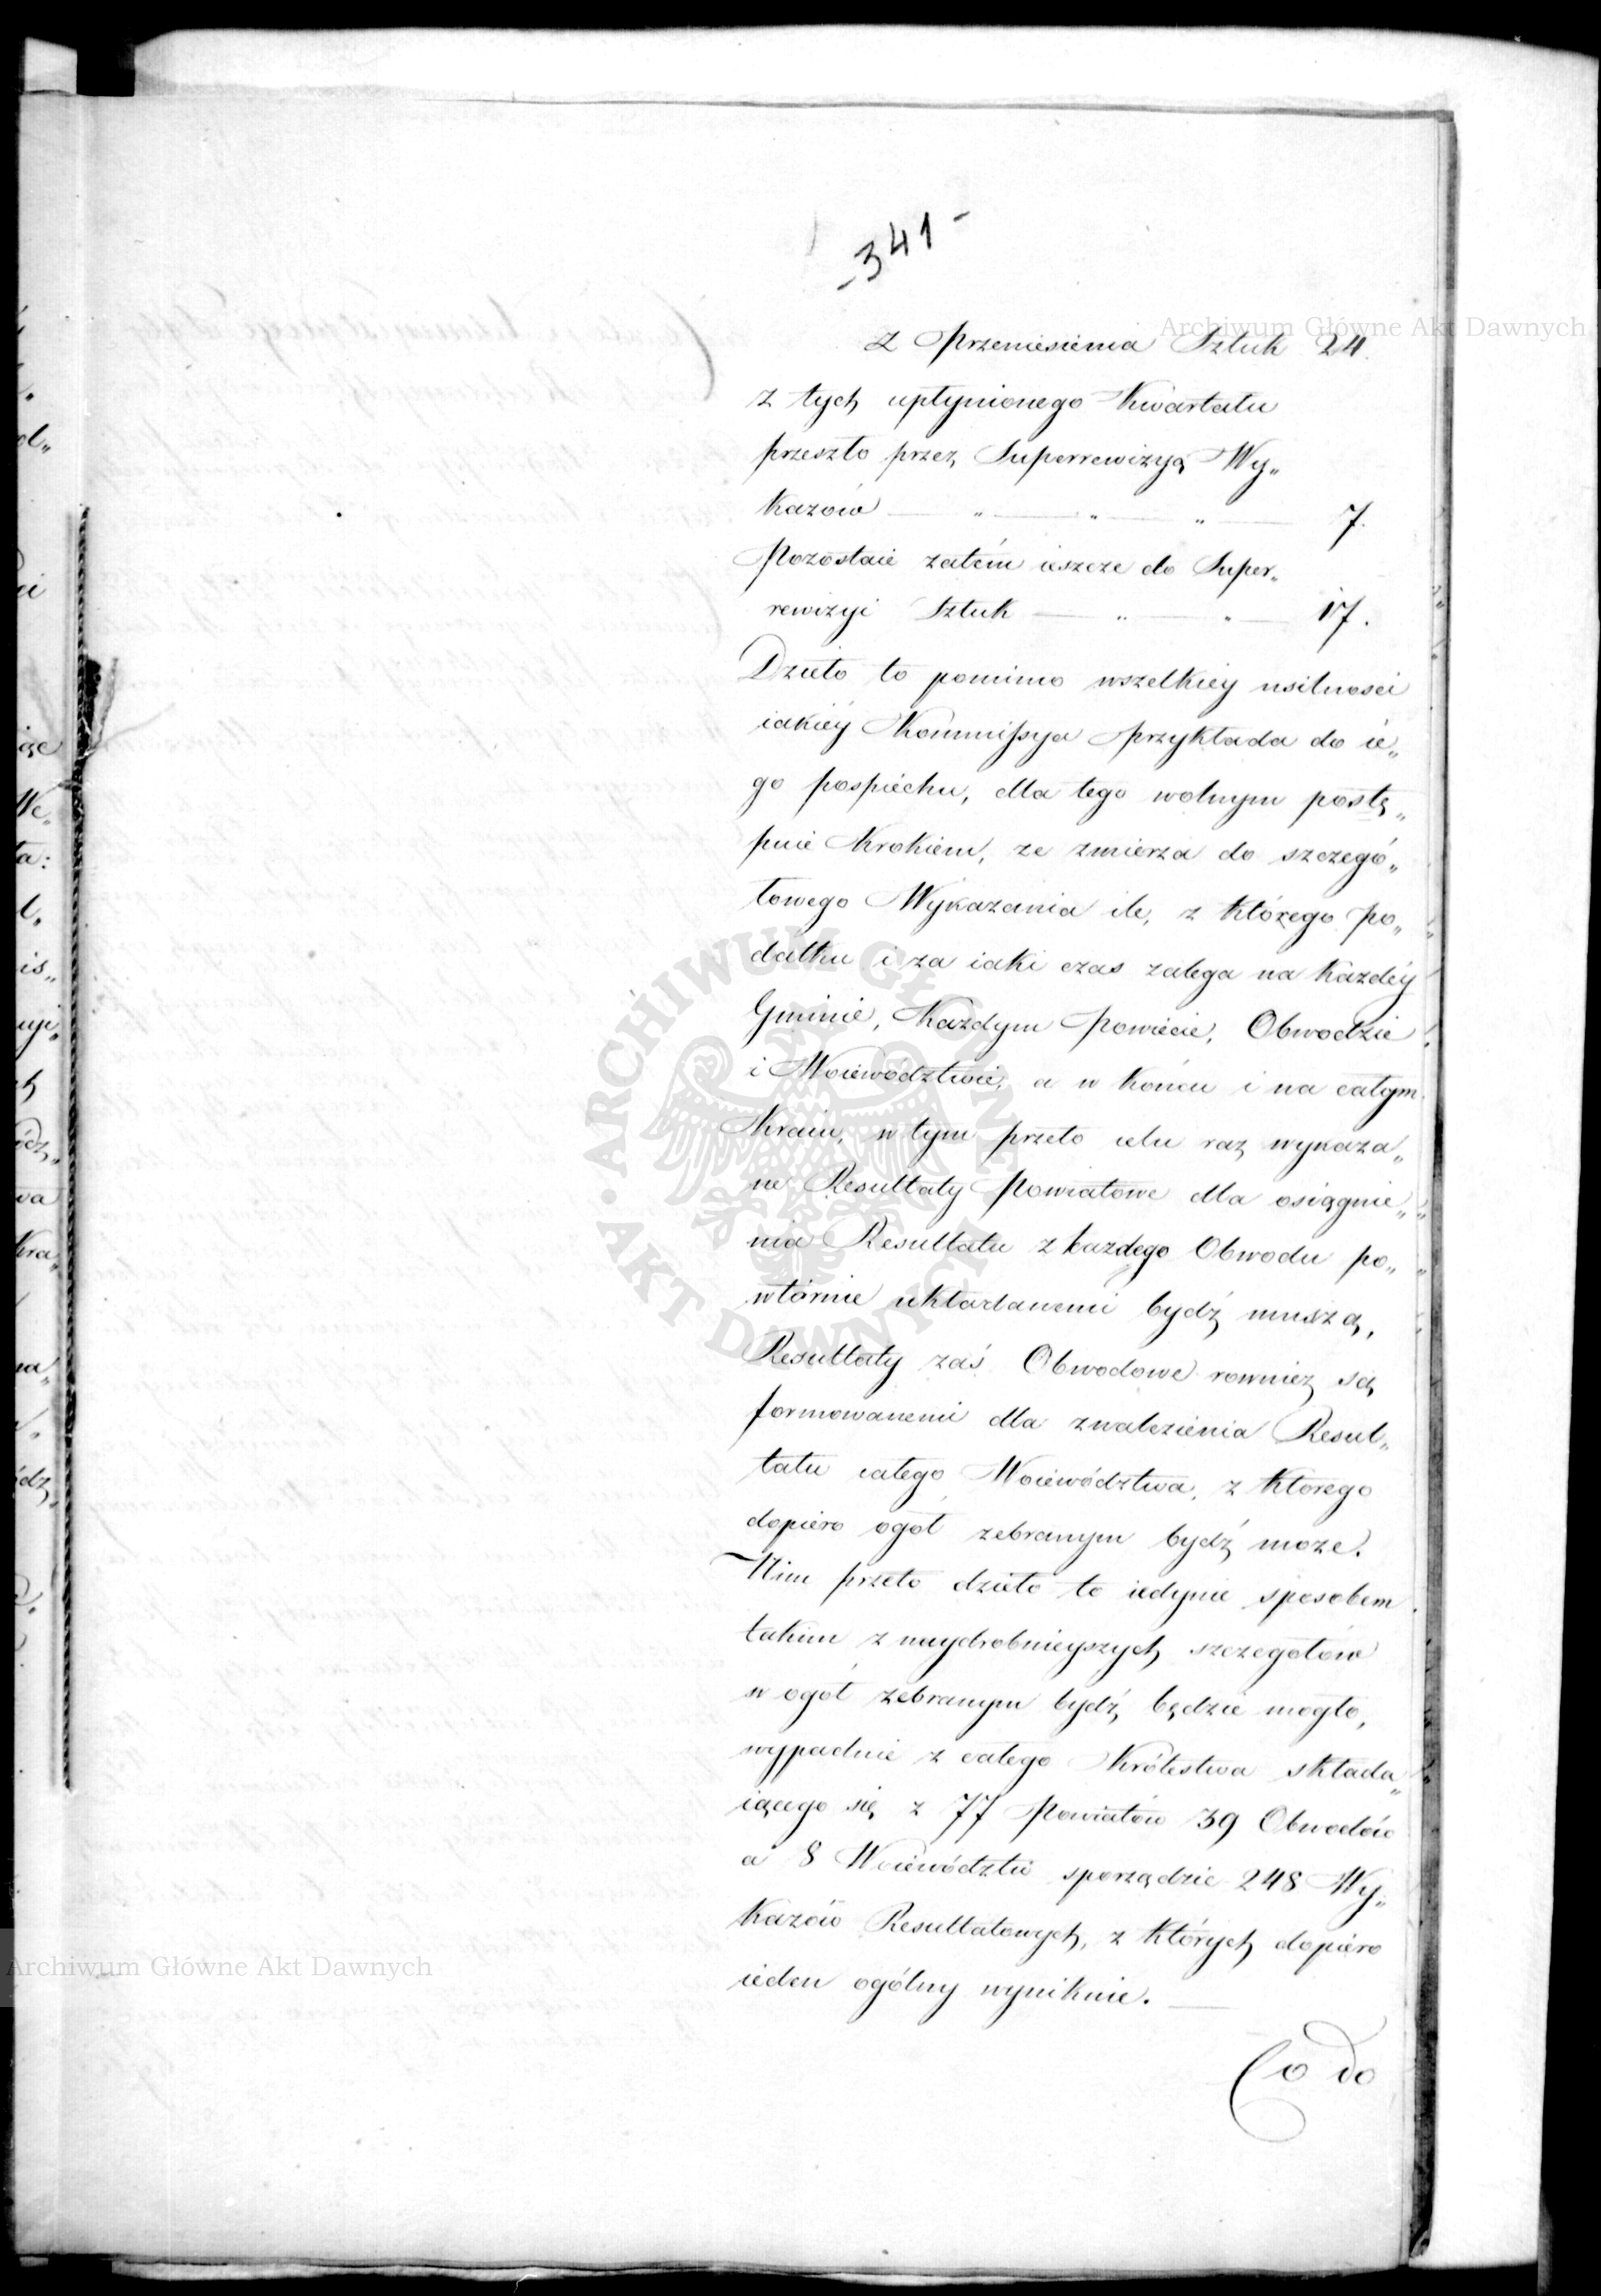 -341-
Archiwum Główne Akt Dawnych
Z Przeniesienia Sztuk 24.
z tych upłynionego Kwartału
przeszło przez Superrewizyą Wy„
kazów — „ — „ — „ — 7.
Pozostaie zatém ieszcze do Super„
rewizyi Sztuk — „ — „ — 17.
Dzieło to pomimo wszelkiéy usilności
iakiéy Kommissya przykłada do ie„
go pospiéchu, dla tego wolnym postę„
puie Krokiem, ze zmierza do szczegó„
łowego Wykazania ile, z którego po„
datku i za iaki czas zalega na Każdéy
Gminie, Każdym Powiecie, Obwodzie
i Woiewództwie, a w Końcu i na całym
Kraiu, w tym przeto celu raz wykaza„
ne Resultaty Powiatowe dla osiągnie„
nia Resultatu z każdego Obwodu po„
wtórnie układanemi bydź muszą,
Resultaty zaś Obwodowe rownież są
formowanemi dla znalezienia Resul„
tatu całego Woiewództwa, z Ktorego
dopiero ogół zebranym bydź może.
Nim przeto dzieło to iedynie sposobem
takim z naydrobnieyszych szczegołów
w ogół zebranym bydź będzie mogło,
wypadnie z całego Królestwa składa„
iącego się z 77 Powiatów 39 Obwodów
a 8 Woiewództw sporządzić 248 Wy„
kazów Resultatowych, z Których dopiero
ieden ogólny wyniknie. —
Co do
ARCHIWUM GŁÓWNE • AKT DAWNYCH
Archiwum Główne Akt Dawnych